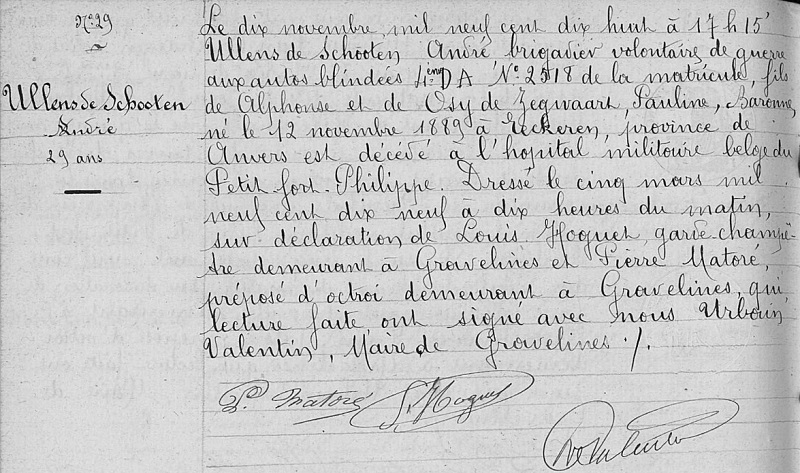 N° 29
Ullens de Schooten
André
29 ans
Le dix novembre, mil neuf cent dix huit à 17 h 15'
Ullens de Schooten André brigadier volontaire de guerre
aux autos blindées 4ième DA N° 2518 de la matricule, fils
de Alphonse et de Osy de Zegwaart, Pauline, Baronne,
né le 12 novembre 1889 à Eeckeren, province de
Anvers est décédé à l'hopital militaire belge du
Petit fort-Philippe. Dressé le cinq mars mil
neuf cent dix neuf à dix heures du matin,
sur déclaration de Louis Hoguet, garde-champê-
tre demeurant à Gravelines et Pierre Matoré,
préposé d'octroi demeurant à Gravelines, qui
lecture faite, ont signé avec nous Urbain
Valentin, Maire de Gravelines ./.
P. Matoré L. Hoguet
U. Valentin